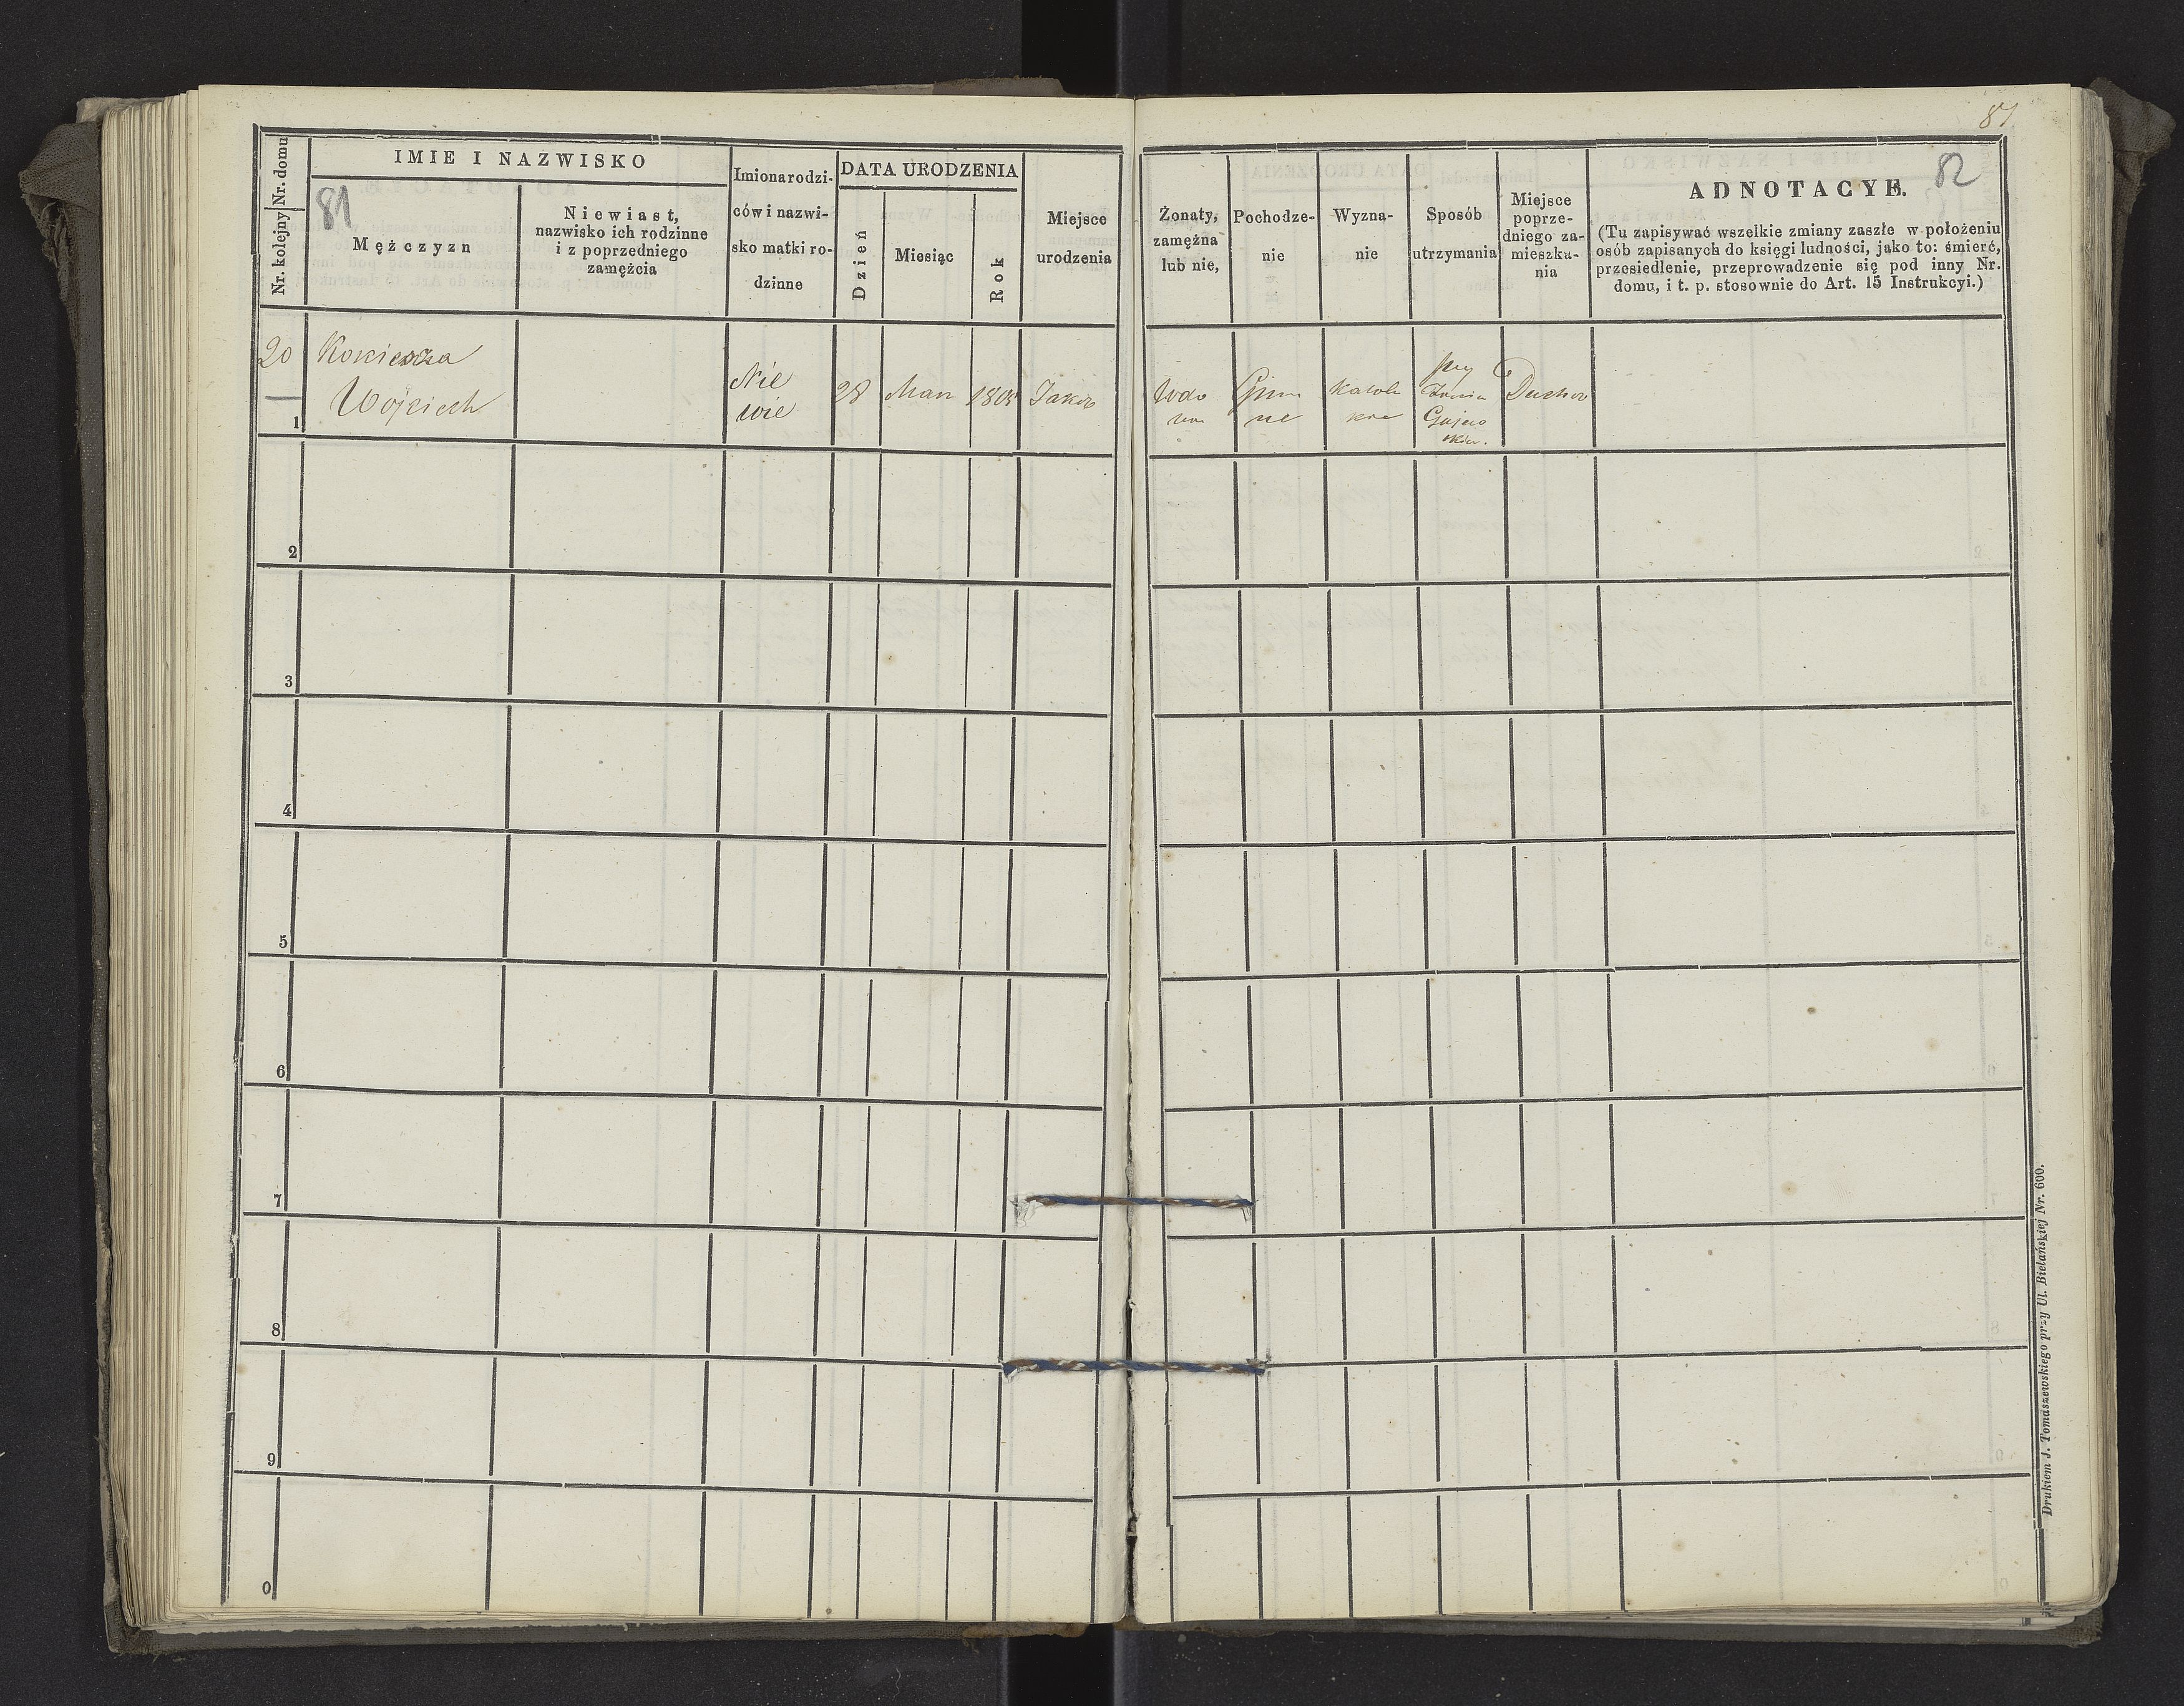 81
82
81
Nr. domu
Nr. kolejny
IMIE I NAZWISKO
Mężczyzn
Niewiast,
nazwisko ich rodzinne
i z poprzedniego
zamężcia
Imiona rodzi-
ców i nazwi-
sko matki ro-
dzinne
DATA URODZENIA
Dzień
Miesiąc
Rok
Miejsce
urodzenia
Żonaty,
zamężna
lub nie,
Pochodze-
nie
Wyzna-
nie
Sposób
utrzymania
Miejsce
poprze-
dniego za-
mieszka-
nia
ADNOTACYE.
(Tu zapisywać wszelkie zmiany zaszłe w położeniu
osób zapisanych do księgi ludności, jako to: śmierć,
przesiedlenie, przeprowadzenie się pod inny Nr.
domu, i t. p. stosownie do Art. 15 Instrukcyi.)
20
1
Wojciech
Nie
wie
28
1805
Wdo
Gmin
ne
przy
2
3
4
5
6
7
8
9
0
Drukiem J. Tomaszewskiego przy Ul. Bielańskiej Nr. 600.